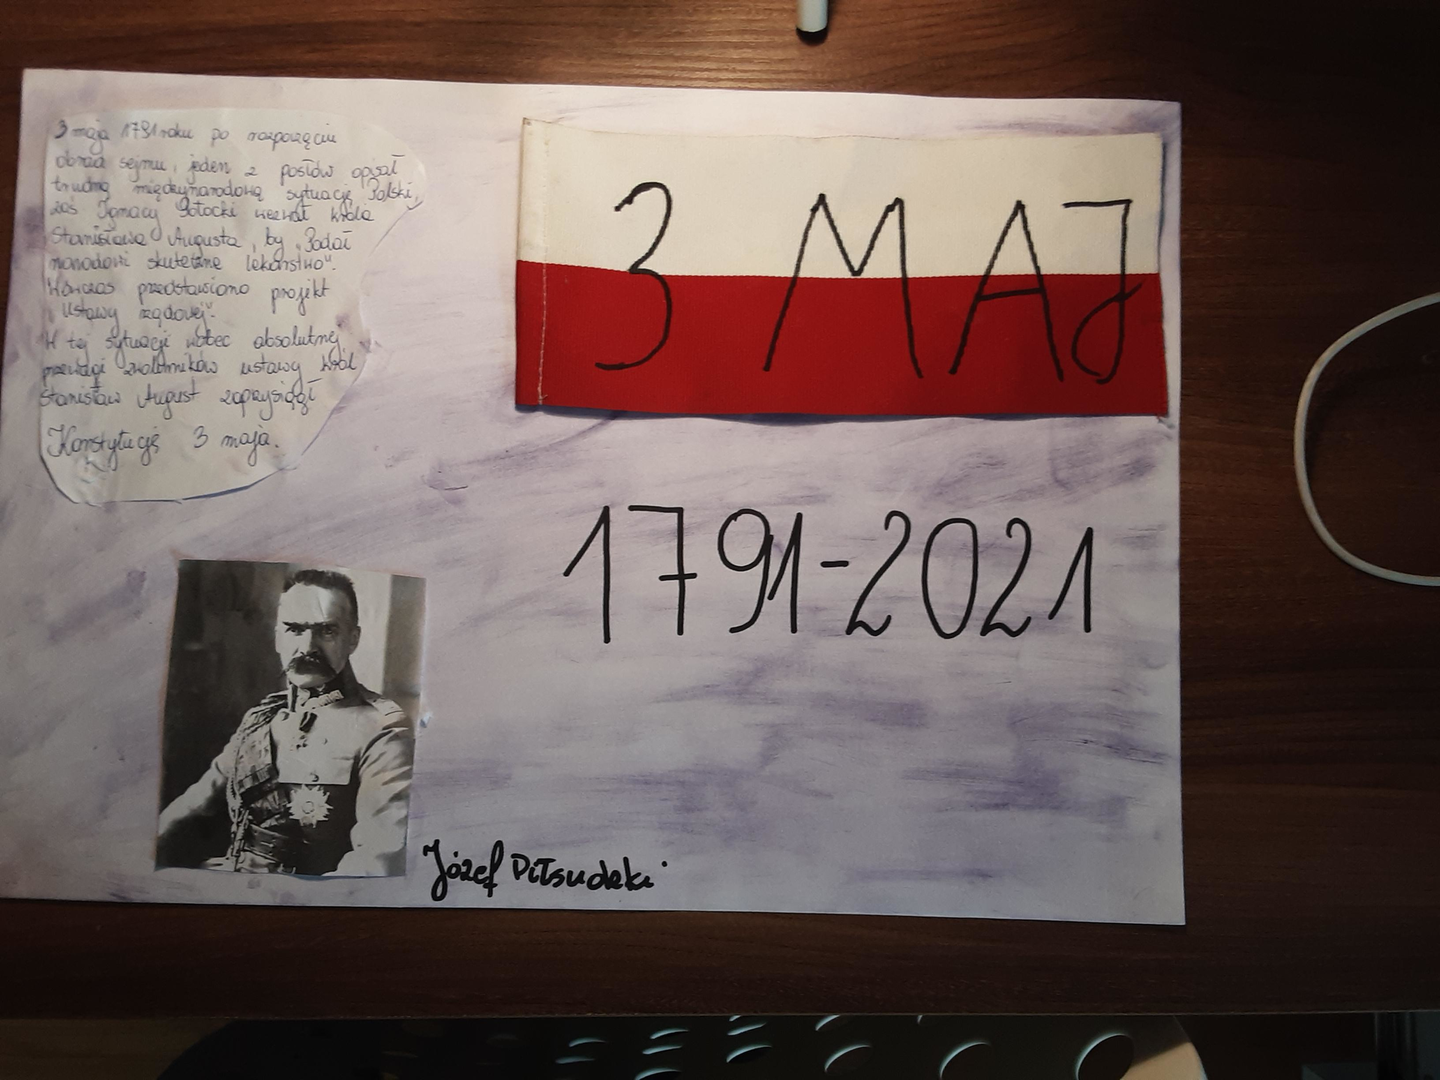 3 maja 1791 roku po rozpoczęciu
obrad sejmu, jeden z posłów opisał
trudną międzynarodową sytuację Polski,
zaś Ignacy Potocki wezwał króla
Stanisława Augusta, by „Podał
narodowi skuteczne lekarstwo”.
Wówczas przedstawiono projekt
„Ustawy rządowej”.
W tej sytuacji wobec absolutnej
przewagi zwolenników ustawy król
Stanisław August zaprzysiągł
Konstytucję 3 maja.
3 MAJ
1791-2021
Józef Piłsudski